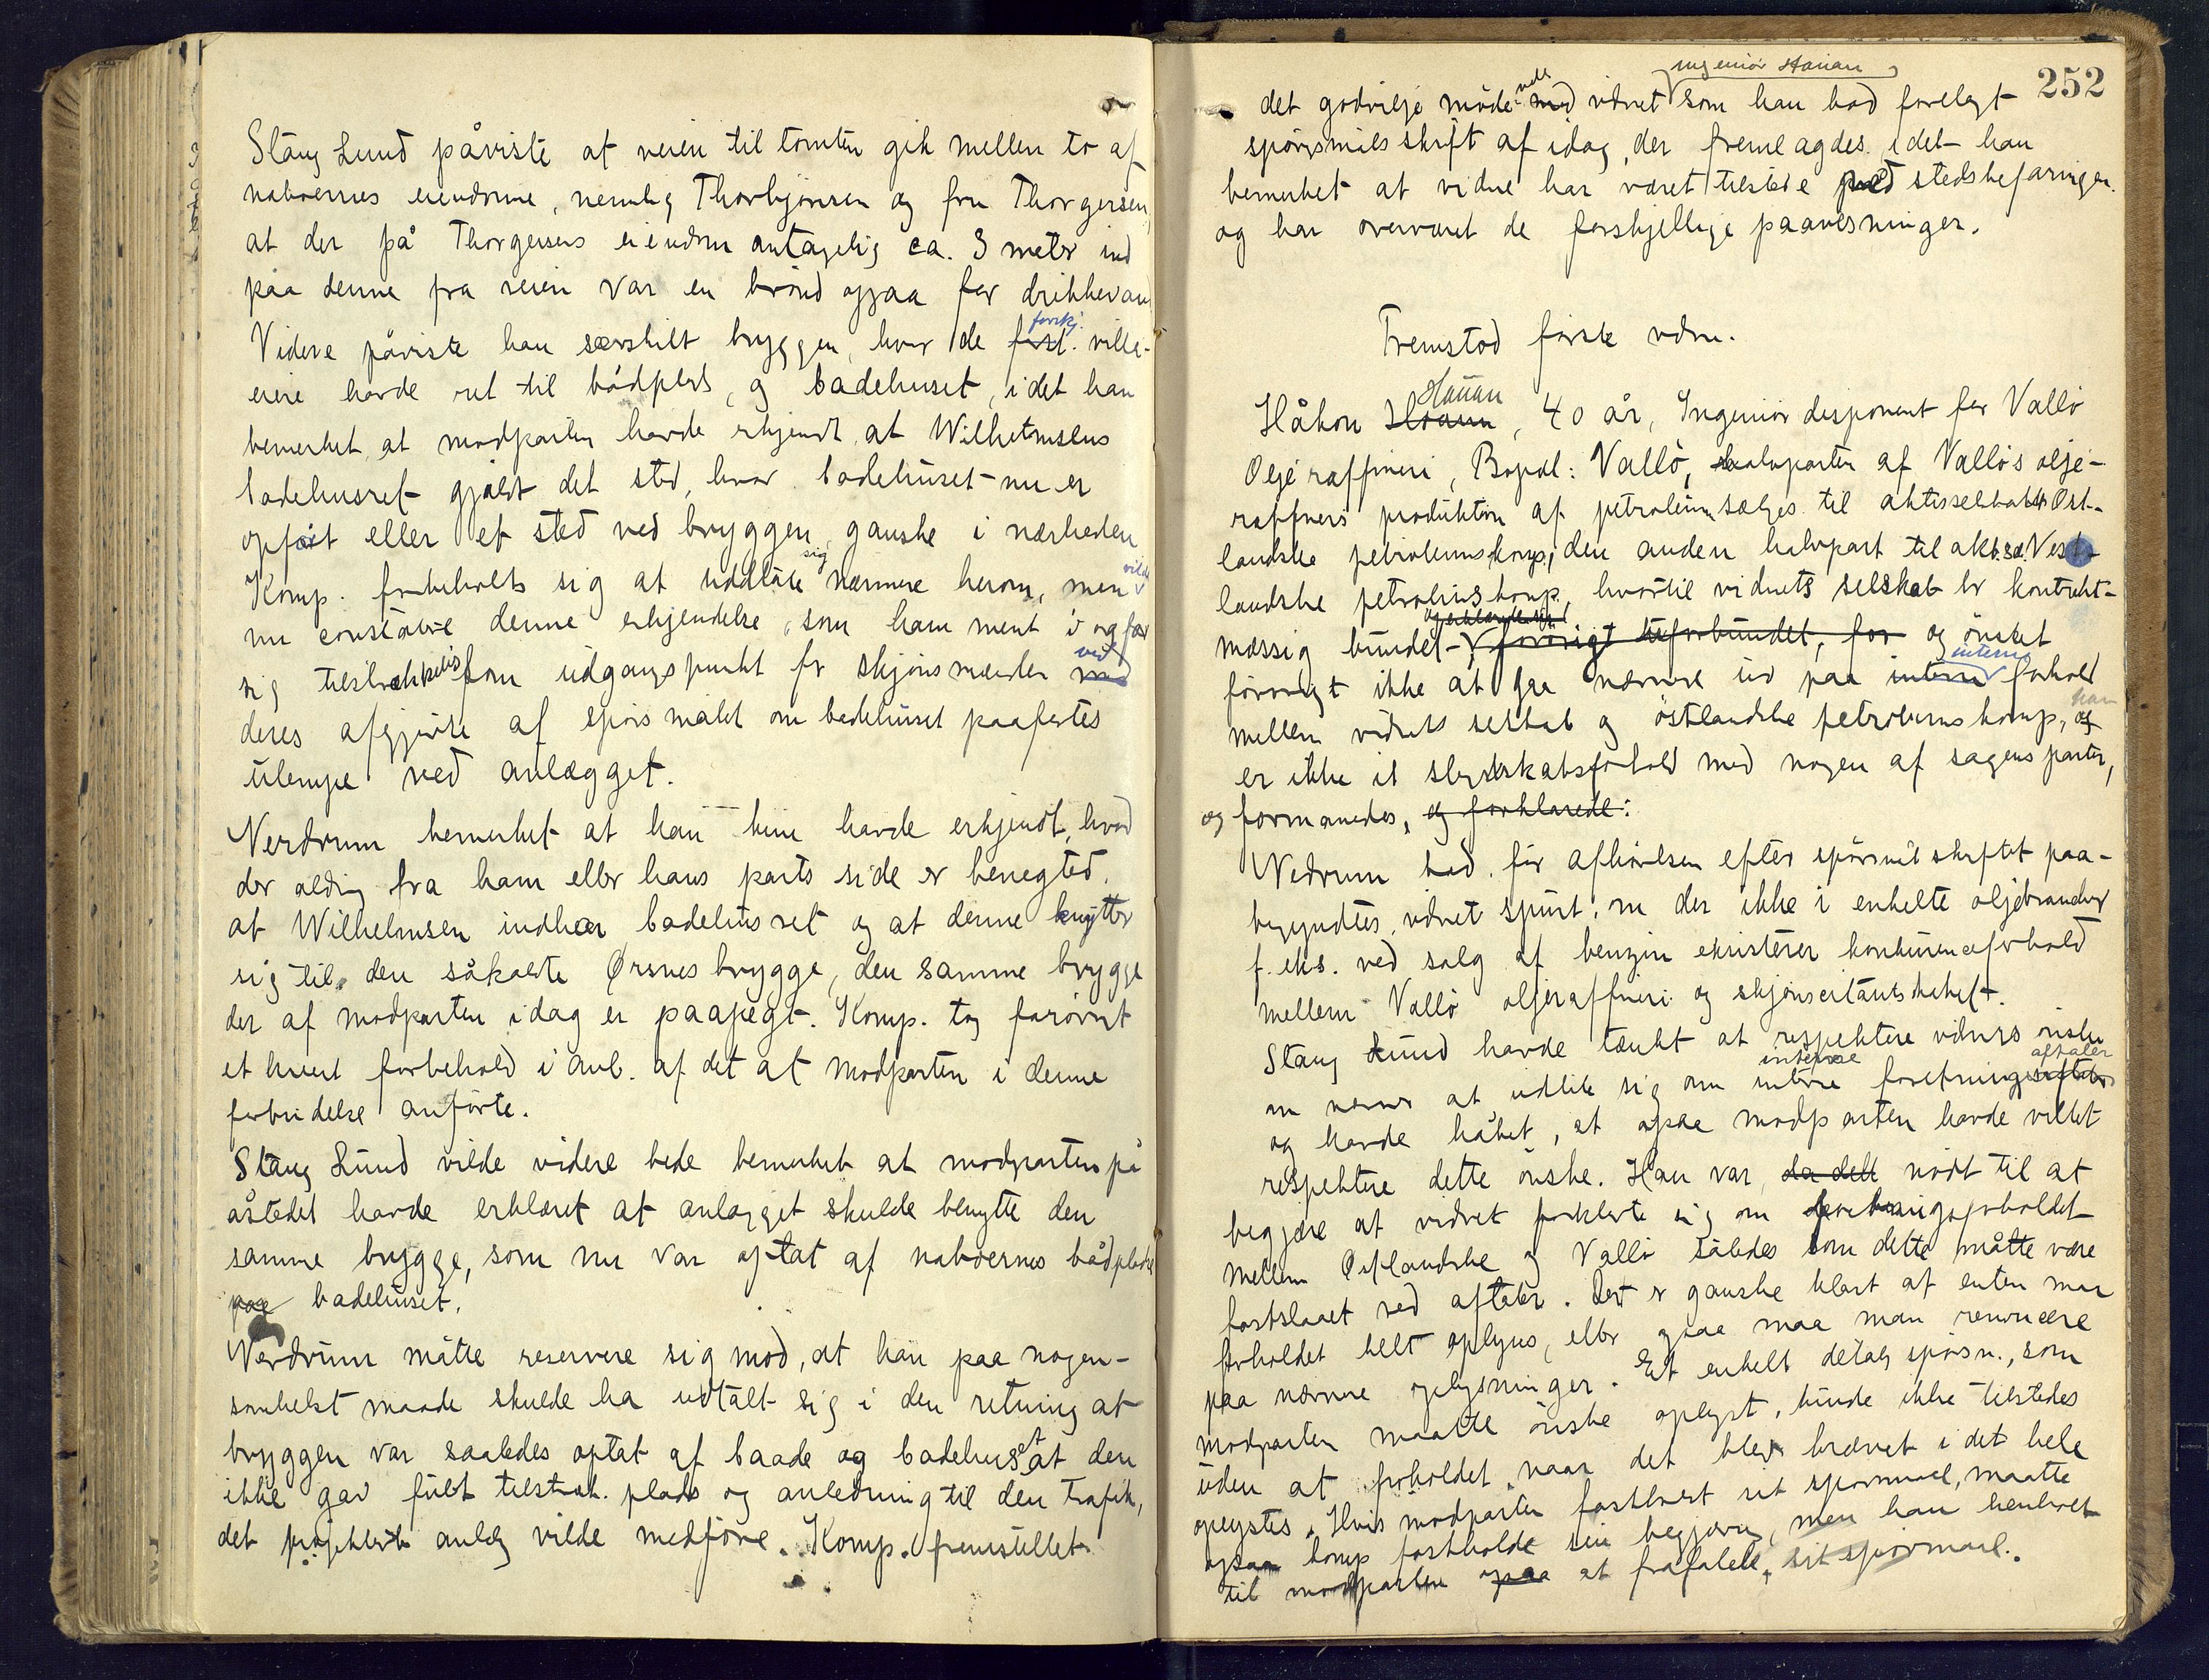 Stang Lund påviste at veien til tomten gik mellem to af
naboernes eiendomme, nemlig Thorbjørnsen og fru Thorgersen,
at der på Thorgersens eiendom antagelig ca. 3 meter ind
paa denne fra veien var en brønd ogsaa for drikkevan
Videre påviste han særskilt bryggen, hvor de forskj. villa-
eiere havde ret til bådplads, og badehuset, idet han
bemerket, at modparten havde erkjendt, at Wilhelmsens
badehusret gjaldt det sted, hvor badehuset nu er
opført eller et sted ved bryggen, ganske i nærheden
Komp. forbeholdt sig at uddtale sig nærmere herom, men vilde
nu constatere denne erkjendelse, som han ment i og for
sig tilstrækkelig som udgangspunkt for skjønsmænden ved
deres afgjørelse af spørsmålet om badehuset paaførtes
ulempe ved anlægget.
Nerdrum bemerket at han kun havde erkjendt, hvad
der aldrig fra ham eller hans parts side er benegted,
at Wilhelmsen indhar badehusret og at denne knytter
sig til den såkaldte Ørsnes brygge, den samme brygge
der af modparten idag er paapegt. Komp. tog forøvrigt
et hvert forbehold i anl. af det at modparten i denne
forbindelse anførte.
Stang Lund vilde videre bede bemerket at modparten på
åstedet havde erklæret at anlægget skulde benytte den
samme brygge, som nu var optat af naboernes bådpladse
og badehuset.
Nerdrum måtte reservere sig mod, at han paa nogen-
somhelst maade skulde ha udtalt sig i den retning at
bryggen var saaledes optat af baade og badehuset at den
ikke gav fuldt tilstræk. plads og anledning til den trafik,
det projekterte anlæg vilde medføre. Komp. fremstillet
252
ingeniør Hanan
det godvilje møde vidnet som han bad forelagt
spørgsmåls skrift af idag, der fremlagdes idet han
bemerket at vidne har været tilstede ved stedsbefaringen
og har overværet de forskjellige paavisninger.
Fremstod første vidne.
Håkon Hanan, 40 år, Ingeniør disponent for Vallø
Oljeraffineri, Bopæl: Vallø, halvparten af Valløs olje-
raffineri produktion af petroleum sælges til aktieselskabet Øst-
landske petroleumskomp., den anden halvpart til akt.se. Vest-
landske petroleumskomp., hvortil vidnets selskab er kontrakt-
mæssig bundet og ønsket
forøvrigt ikke at gaa nærmere ind paa interne forhold
mellem vidnets selskab og østlandske petroleumskomp., han
er ikke i slegtskabsforhold med nogen af sagens parter,
og formanedes, og forklarede:
Nerdrum bad før afhørelsen efter spørsmålskriftet paa-
begyndtes, vidnet spurt, om der ikke i enkelte oljebrancher
f. eks. ved salg af benzin eksisterer konkurrenceforhold
mellem Vallø oljeraffineri og skjønscitantskabet.
Stang Lund havde tænkt at respektere vidnets ønske
om nærmere at udtale sig om interne forretningsaftaler
og havde håbet, at ogsaa modparten havde villet
respektere dette ønske. Han var nødt til at
begjære at vidnet forklarte sig om forretningsforholdet
mellem Østlandske og Vallø således som dette måtte være
fastslaaet ved aftaler. Det er ganske klart at enten maa
forholdet helt oplyses, eller ogsaa maa man renoncere
paa nærmere oplysninger. Et enkelt detalj spørsm., som
modparten maatte ønske oplyst, kunde ikke tilstedes
uden at forholdet, naar det blev krævet i det hele
oplystes. Hvis modparten fastholdt sit spørsmaal, maatte
ogsaa komp fastholde sin begjæring, men han henstillet
til modparten ogsaa at frafalde sit spørsmaal.